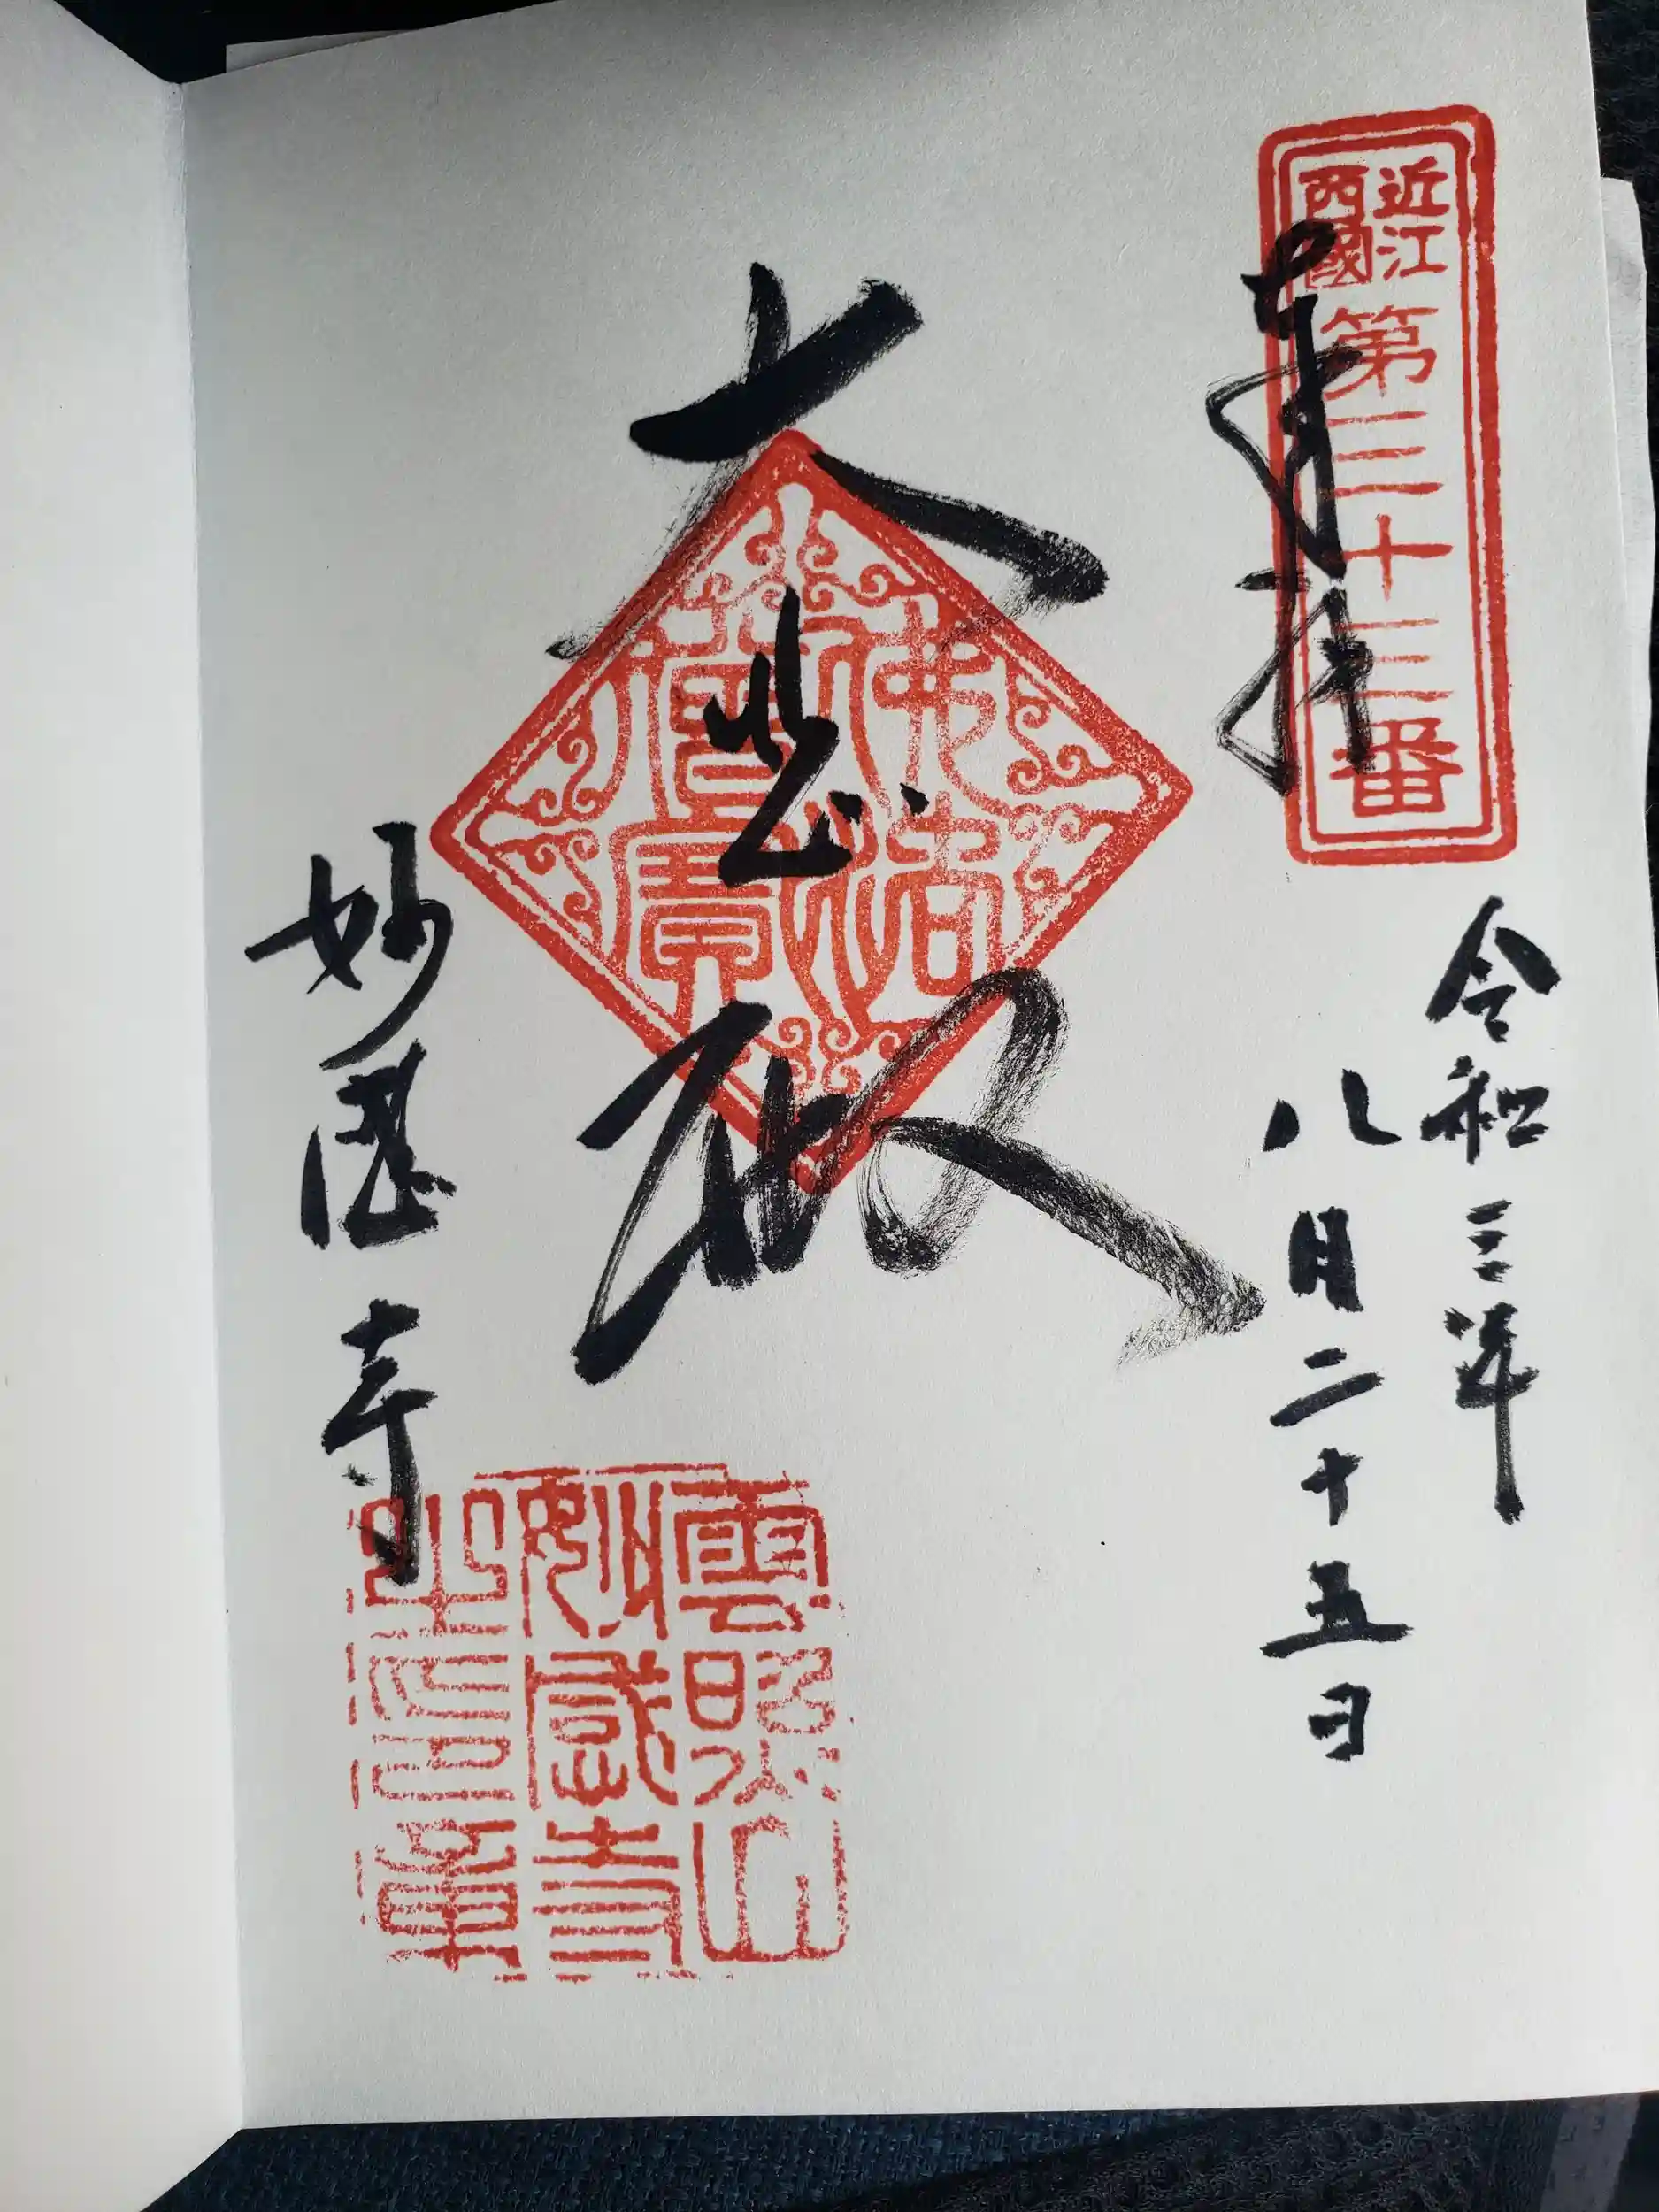 近江
西國
第三十三番
奉拝
令和三年
八月二十五日
大悲殿
佛法
僧寶
妙感寺
雲照山
妙感寺
之印章